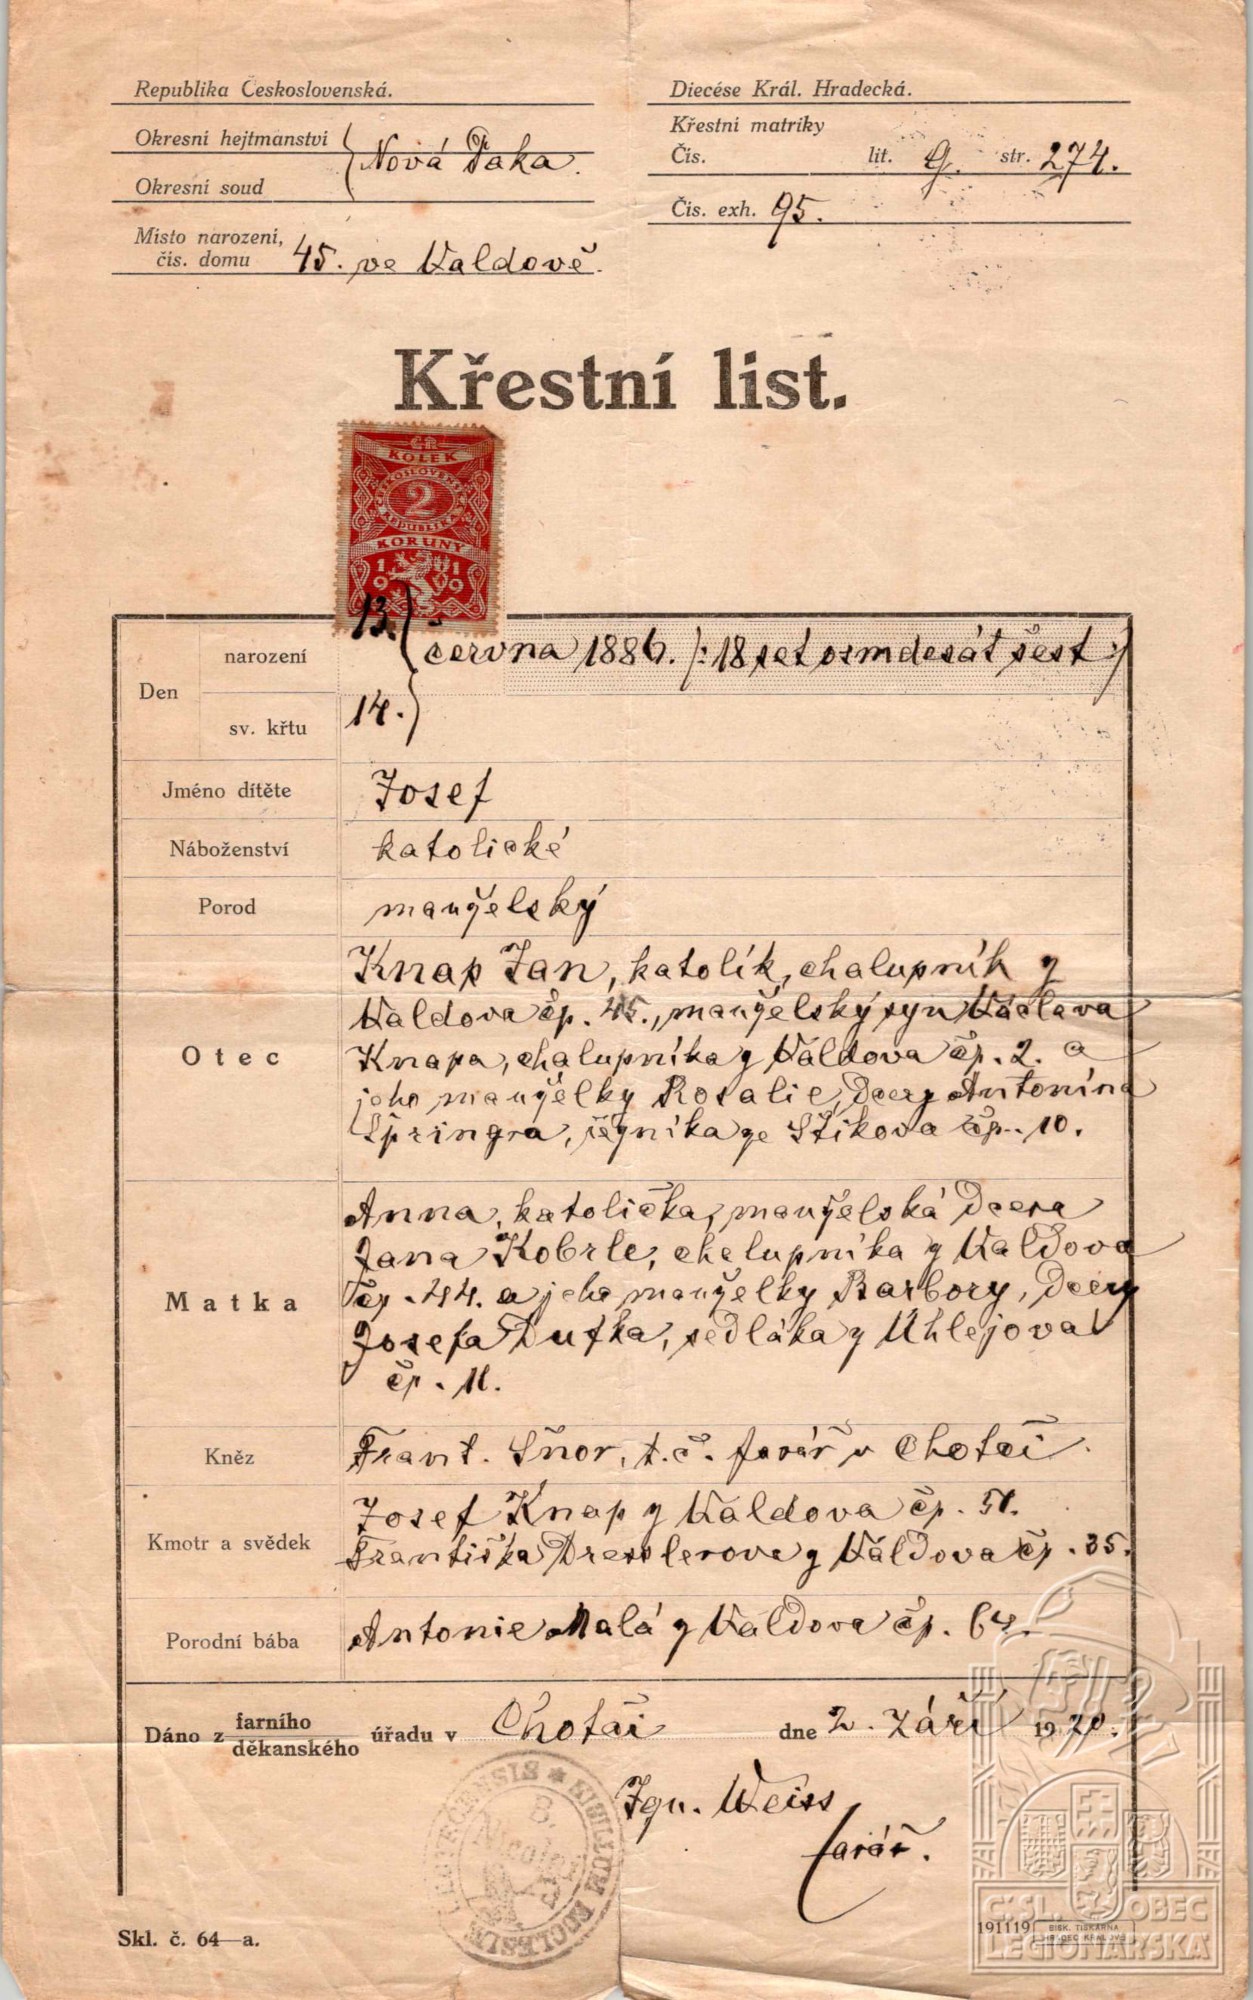 Republika Československá.
Okresní hejtmanství
Nová Paka.
Okresní soud
Místo narození,
čís. domu 45. ve Valdově.
Diecése Král. Hradecká.
Křestní matriky
Čís. lit. 9. str. 274.
Čís. exh. 95.
Křestní list.
ČR
KOLEK
ČESKOSLOVENSKÁ
2
REPUBLIKA
KORUNY
1919
Den
narození 13. června 1886. /: 18 set osmdesát šest :/
sv. křtu 14.
Jméno dítěte Josef
Náboženství katolické
Porod manželský
Otec
Knap Jan, katolík, chalupník z
Valdova čp. 45., manželský syn Václava
Knapa, chalupníka z Valdova čp. 2. a
jeho manželky Rosalie, dcery Antonína
Špringra, řezníka ze Stikova čp. 10.
Matka
Anna, katolička, manželská dcera
Jana Kobrle, chalupníka z Valdova
čp. 44. a jeho manželky Barbory, dcery
Josefa Dufka, sedláka z Úhlejova
čp. 11.
Kněz Frant. Šnor, t. č. farář v Chotči.
Kmotr a svědek
Josef Knap z Valdova čp. 51.
Františka Dresslerova z Valdova čp. 35.
Porodní bába Antonie Malá z Valdova čp. 64.
Dáno z farního
děkanského úřadu v Chotči dne 2. září 1920.
Ign. Weiss
farář.
SIGILLUM ECCLESIÆ
B.
Nicolai
Skl. č. 64—a.
191119 BISK. TISKÁRNA
HRADEC KRÁLOVÉ
ČSL. OBEC
LEGIONÁŘSKÁ